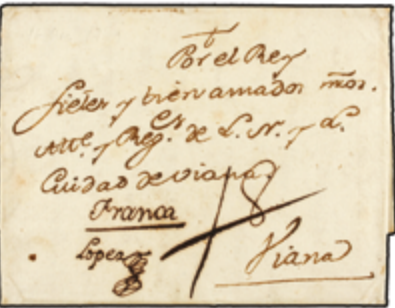 Por el Rey
fieles y bien amados mos.
Alle. y Reges. de L. N. y L.
Cuidad de Viana,
Franca
Lopez
Viana